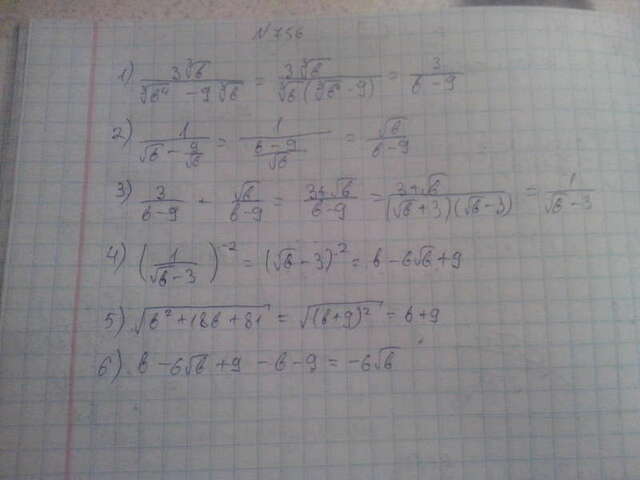 N 756
1) 3∛b / (∛b⁴ - 9∛b) = 3∛b / (∛b(∛b³ - 9)) = 3 / (b - 9)
2) 1 / (√b - 9/√b) = 1 / ((b - 9)/√b) = √b / (b - 9)
3) 3 / (b - 9) + √b / (b - 9) = (3+√b) / (b - 9) = (3+√b) / ((√b + 3)(√b - 3)) = 1 / (√b - 3)
4) (1 / (√b - 3))⁻² = (√b - 3)⁻² = b - 6√b + 9
5) √(b² + 18b + 81) = √((b+9)²) = b + 9
6) b - 6√b + 9 - b - 9 = -6√b